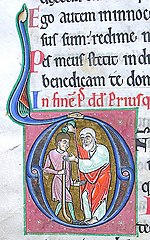 Ego autem in innoce
sus sum: redime m
Pes meus stetit in di
benedicam te do
In fine P. dd. Priusq